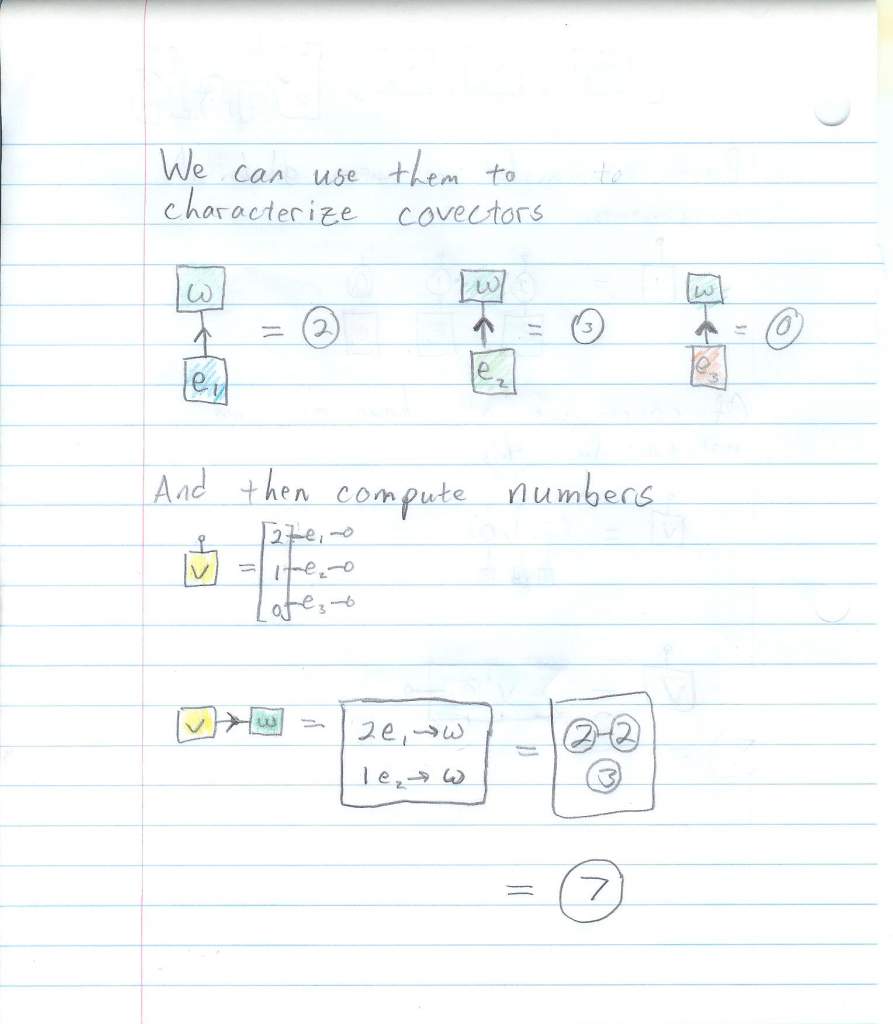 We can use them to
characterize covectors
ω ω ω
= 2 = 3 = 0
e₁ e₂ e₃
And then compute numbers
v = [2 e₁
1 e₂
0 e₃]
v → ω = 2e₁ → ω = 2-2
1e₂ → ω 3
= 7